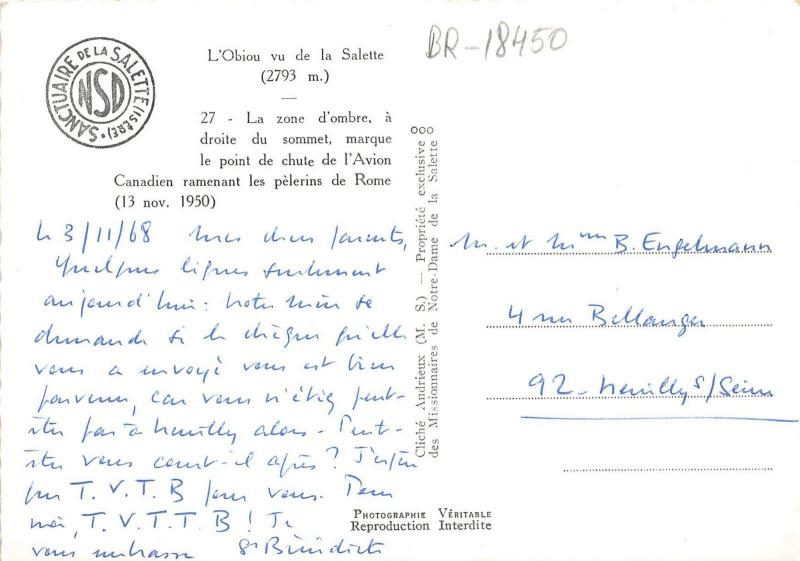 BR-18450
SANCTUAIRE DE LA SALETTE (ISÈRE)
NSD
L'Obiou vu de la Salette
(2793 m.)
27 - La zone d'ombre, à
droite du sommet, marque
le point de chute de l'Avion
Canadien ramenant les pèlerins de Rome
(13 nov. 1950)
le 3/11/68 mes chers parents,
Quelques lignes seulement
aujourd'hui : notre mère se
demande si le chèque qu'elle
vous a envoyé vous est bien
parvenu, car vous n'étiez peut-
être pas à Neuilly alors - Peut-
être vous court-il après ? J'espère
que T.V.T.B pour vous. Pour
moi, T.V.T.T.B ! Je
vous embrasse Sr Bénédicte
Cliché Andrieux (M. S.) — Propriété exclusive
des Missionnaires de Notre-Dame de la Salette
M. et Mme B. Engelmann
4 rue Bellanger
92 - Neuilly s/Seine
PHOTOGRAPHIE VÉRITABLE
Reproduction Interdite